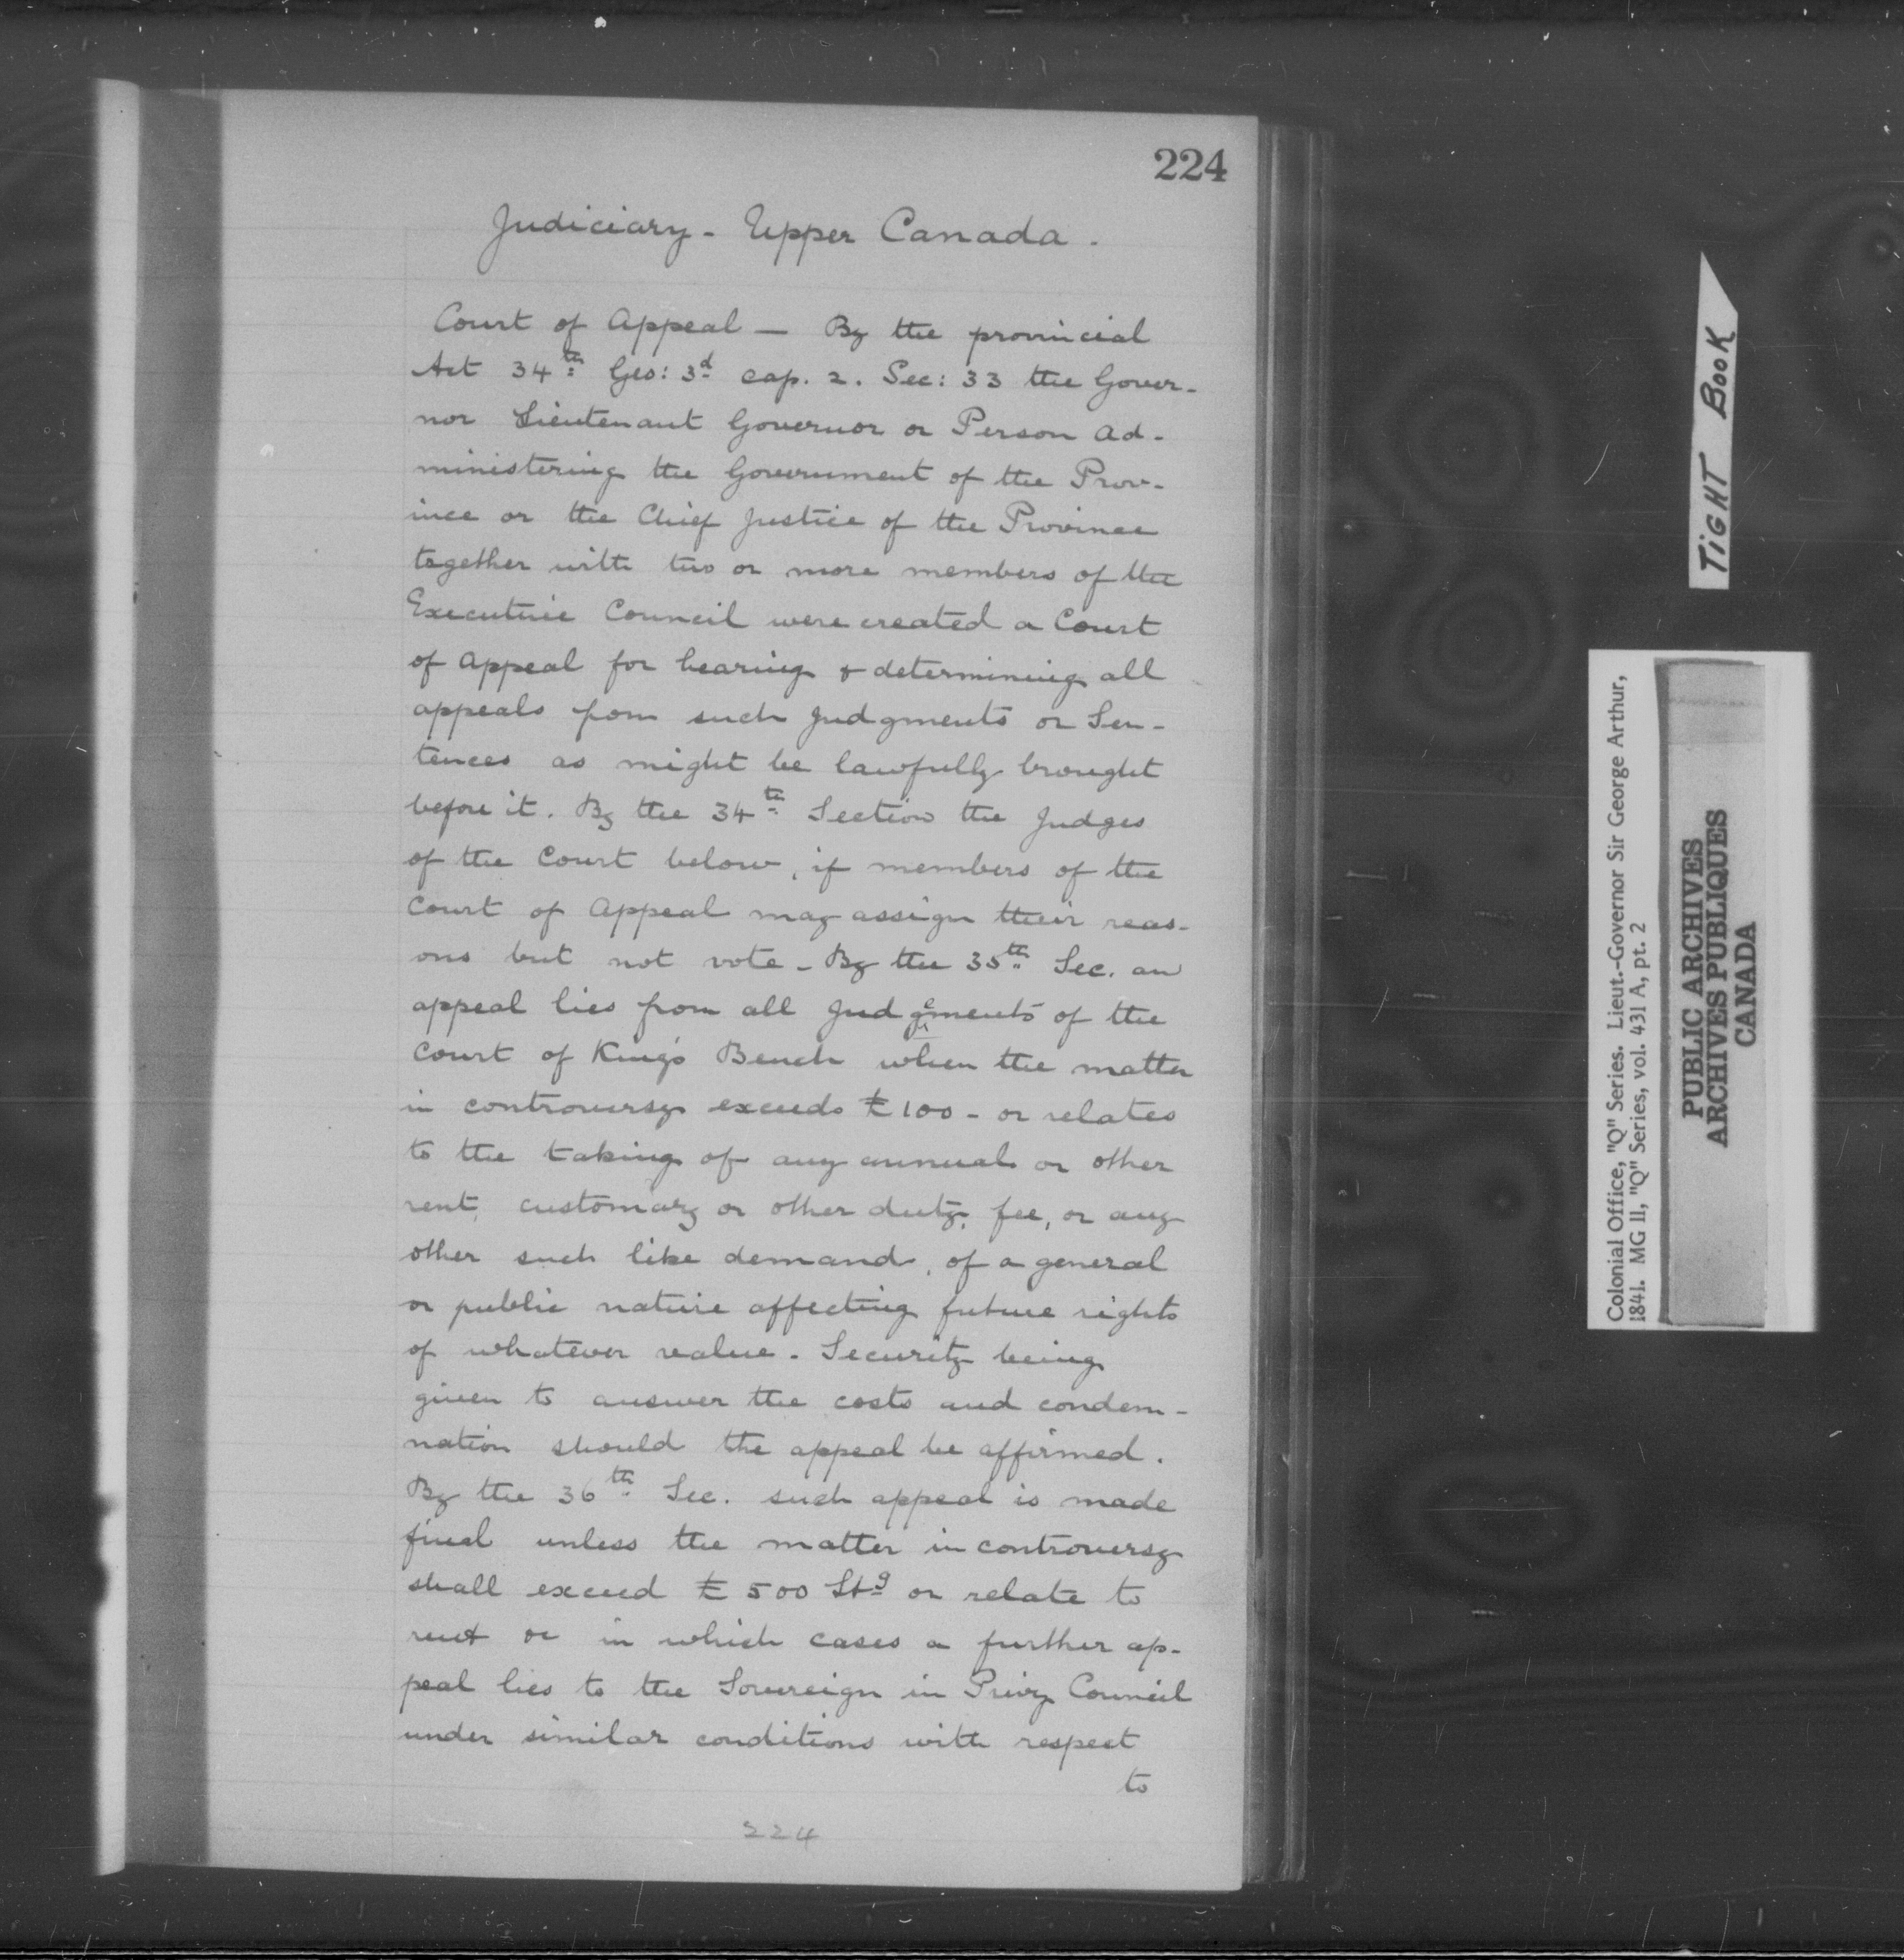 224
Judiciary - Upper Canada.
Court of Appeal — By the provincial
Act 34th Geo: 3d cap. 2. Sec: 33 the Gover-
nor Lieutenant Governor or Person ad-
ministering the Government of the Prov-
ince or the Chief Justice of the Province
together with two or more members of the
Executive Council were created a Court
of Appeal for hearing & determining all
appeals from such Judgments or Sen-
tences as might be lawfully brought
before it. By the 34th Section the Judges
of the Court below, if members of the
Court of Appeal may assign their reas-
ons but not vote - By the 35th Sec. an
appeal lies from all Judgements of the
Court of King's Bench when the matter
in controversy exceeds £100 - or relates
to the taking of any annual or other
rent, customary or other duty, fee, or any
other such like demand, of a general
or public nature affecting future rights
of whatever value. Security being
given to answer the costs and condem-
nation should the appeal be affirmed.
By the 36th Sec. such appeal is made
final unless the matter in controversy
shall exceed £500 Stg or relate to
rent or in which cases a further ap-
peal lies to the Sovereign in Privy Council
under similar conditions with respect
to
224
TIGHT BOOK
Colonial Office, "Q" Series. Lieut.-Governor Sir George Arthur,
1841. MG 11, "Q" Series, vol. 431 A, pt. 2
PUBLIC ARCHIVES
ARCHIVES PUBLIQUES
CANADA